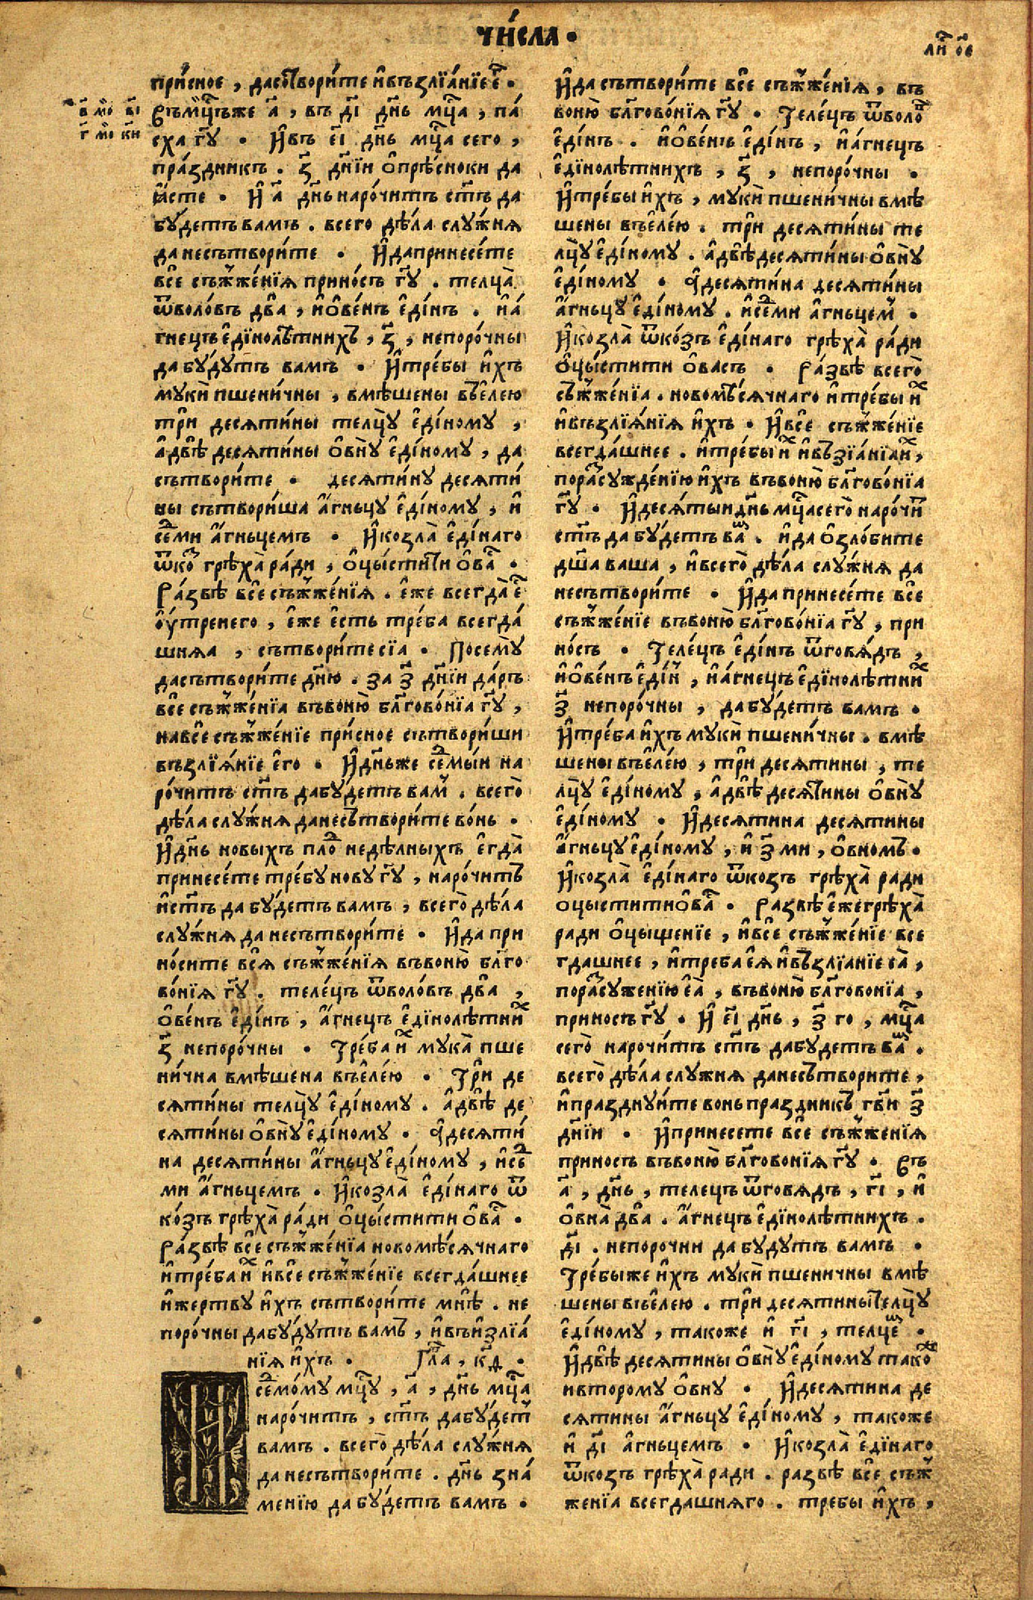 чи́сла •
ли҃ ѻ҃е
при́сное , дасⸯтвори́те и҆възлїѧ́нїе е҆г •
в҃ мѡ вı҃
Въмц҃ъже а҃ , въ д҃ı дн҃ь мц҃а , па́
г҃ мѡ ки
сха гⷭ҇у • И҆въ е҃ı дн҃ь мц҃а сего ,
пра́здникъ . з҃ дн҃їи ѻ҆прѣсноки да
ꙗ҆сте • И҆ а҃ дн҃ь наро́читъ ст҃ъ да
бу́детъ вамъ . всего дѣ́ла слу́жнѧ
да несътвори́те • И҆дапринесе́те
всѐ съж҃же́нїѧ прино́съ гⷭ҇у . телца̀
ѿволо́въ два , и҆ѻ҆ве́нъ е҆ди́нъ . и҆а́
гнецъ е҆дїнолѣ́тнихъ , з҃ , непоро́чны
да бу́дутъ вамъ • И҆тре́бы и҆хъ
мукѝ пшени́чны , вмѣ́шены въе҆лею
трѝ десѧти́ны телцу̀ е҆ди́ному ,
а҆двѣ̀ десѧти́ны ѻ҆вну̀ е҆ди́ному , да
сътвори́те • десѧти́ну десѧти́
ны сътвори́ша а҆́гньцу е҆ди́ному , и҆
се́дми а҆́гньцемъ • И҆козла̀ е҆ди́наго
ѿкоⷥ грѣха̀ ра́ди , ѻ҆цы́стити ѻ҆ваⷭ •
Ра́звѣ всѐ съж҃же́нїѧ . е҆же всегда̀ еⷭ
ѻу҆́тренего , е҆же е҆сть тре́ба всегда́
шнѧѧ , сътвори́те сїа • Посему̀
дасътвори́те дн҃ю . за з҃ дн҃їи да́ръ
всѐ съж҃же́нїа въвоню̀ бл҃гово́нїа гⷭ҇у ,
навсѐ съж҃же́нїе при́сное сътвори́ши
възлїѧ́нїе е҆го • И҆дн҃ьже седмы́и на
ро́читъ ст҃ъ дабу́детъ ваⷨ . всего̀
дѣ́ла слу́жнѧ данесътвори́те во́нь •
И҆дн҃ь новыхъ плоⷣ недѣ́лныхъ е҆гда̀
принесе́те тре́бу нову гⷭ҇у , наро́читъ
и҆ст҃ъ да бу́детъ вамъ , всего̀ дѣ́ла
слу́жнѧ да несътвори́те • И҆да при
но́сите всѧ̀ съж҃же́нїѧ въвоню̀ бл҃го
во́нїѧ гⷭ҇у . теле́цъ ѿволо́въ два̀ ,
ѻ҆ве́нъ е҆ди́нъ , а҆́гнецъ е҆дїнолѣтниⷯ
з҃ непоро́чны • Тре́ба иⷯ мука̀ пше
ни́чна вмѣ́шена въе҆ле́ю • Трѝ де
сѧти́ны телцу̀ е҆ди́ному . а҆двѣ̀ де
сѧти́ны ѻ҆вну̀ е҆ди́ному • И҆десѧти́
на десѧти́ны а҆́гньцу е҆ди́ному , и҆сеⷣ
ми а҆́гньцемъ • И҆козла̀ е҆ди́наго ѿ
ко́зъ грѣха̀ ра́ди ѻ҆цы́стити ѻ҆ваⷭ •
Ра́звѣ всѐ съж҃же́нїа новомѣ́сѧчнаго
и҆тре́ба иⷯ и҆всѐ съж҃же́нїе всегда́шнее
и҆жертву и҆хъ сътвори́те мнѣ̀ . не
поро́чны дабу́дутъ вамъ , и҆възлїа́
нїѧ и҆хъ • Гла̀ , к҃д •
И
седмому мц҃у , а҃ , дн҃ь мц҃а
наро́читъ , ст҃ъ дабу́деⷮ
вамъ . всего̀ дѣ́ла слу́жнѧ
да несътвори́те . дн҃ь зна́
менїю да бу́детъ вамъ •
И҆да сътвори́те всѐ съж҃же́нїѧ , въ
воню̀ бл҃гово́нїѧ гⷭ҇у • Теле́цъ ѿволоⷡ
е҆ди́нъ . и҆ѻ҆ве́нъ е҆ди́нъ , и҆а́гнецъ
е҆дїнолѣ́тнихъ , з҃ , непоро́чны •
И҆тре́бы и҆хъ , мукѝ пшени́чны вмѣ́
шены въе҆ле́ю . трѝ десѧти́ны те
лцу̀ е҆ди́ному . а҆двѣ̀ десѧти́ны ѻ҆вну̀
е҆ди́ному • И҆десѧти́на десѧти́ны
а҆́гньцу е҆ди́ному . и҆седми а҆́гньцеⷨ •
И҆козла̀ ѿко́зъ е҆ди́наго грѣха̀ ра́ди
ѻ҆цы́стити ѻ҆васъ • Ра́звѣ всего̀
съж҃же́нїѧ . новомⷭ҇ѣсѧчнаго и҆тре́бы иⷯ
и҆възлїѧ́нїѧ и҆хъ • И҆всѐ съж҃же́нїе
всегда́шнее . и҆тре́бы иⷯ и҆възїа́нїаиⷯ ,
поразсужде́нїю и҆хъ въвоню̀ бл҃гово́нїа
гⷭ҇у • И҆десѧтыи дн҃ь мц҃а сего̀ наро́чиⷮ
ст҃ъ да бу́детъ ваⷨ . и҆да ѻ҆зло́бите
дш҃а ваша , и҆всего̀ дѣ́ла слу́жнѧ да
несътвори́те • И҆да принесе́те всѐ
съж҃же́нїе въвоню̀ бл҃гово́нїа гⷭ҇у , при
но́съ • Теле́цъ е҆ди́нъ ѿговѧ́дъ ,
и҆ѻ҆ве́нъ е҆диⷩ , и҆а́гнецъ е҆дїнолѣтниⷯ
з҃ непоро́чны , дабу́детъ вамъ •
И҆тре́ба и҆хъ мукѝ пшени́чны . вмѣ́
шены въе҆ле́ю , трѝ десѧти́ны , те
лцу̀ е҆ди́ному , а҆двѣ̀ десѧтины ѻ҆вну̀
е҆ди́ному • И҆десѧтина десѧтины
а҆́гньцу е҆ди́ному , и҆ з҃ ми , ѻ҆вномъ •
И҆козла̀ е҆ди́наго ѿкозъ грѣха̀ ради
оцыстити ѻ҆ваⷭ • Развѣ е҆жегрѣха̀
ради ѻ҆цыщенїе , и҆всѐ съж҃же́нїе все
гдашнее , и҆треба е҆ѧ и҆възлїа́нїе еѧ̀ ,
поразсуженїю еѧ̀ , въвоню̀ бл҃говонїа ,
приносъ гⷭ҇у • И҆ е҃ı дн҃ь , з҃ го , мц҃а
сего̀ нарочитъ ст҃ъ дабудетъ ваⷨ .
всего̀ дѣ́ла слу́жнѧ данесътворите ,
и҆празднуите вонь праздникъ гв҃и з҃
дн҃їи • И҆принесете всѐ съж҃же́нїѧ
приносъ въвоню̀ бл҃говонїѧ гⷭ҇у • Въ
а҃ , дн҃ь , телецъ ѿговѧдъ , г҃ı , и҆
ѻ҆вна̀ два̀ . а҆гнецъ е҆дїнолѣтнихъ .
д҃ı . непорочни да будутъ вамъ •
Требыже и҆хъ мукѝ пшеничны вмѣ
шены въе҆лею . трѝ десѧтины телцу̀
е҆ди́ному , такоже и҆ г҃ı , телцеⷨ •
И҆двѣ̀ десѧтины ѻ҆вну̀ е҆ди́ному такоⷤ
ивторому ѻ҆вну • И҆десѧтина де
сѧтины а҆́гньцу е҆ди́ному , такоже
и҆ д҃ı а҆гньцемъ • И҆козла̀ е҆ди́наго
ѿкозъ грѣха̀ ради . развѣ всѐ съж҃
женїа всегдашнѧго . требы и҆хъ ,